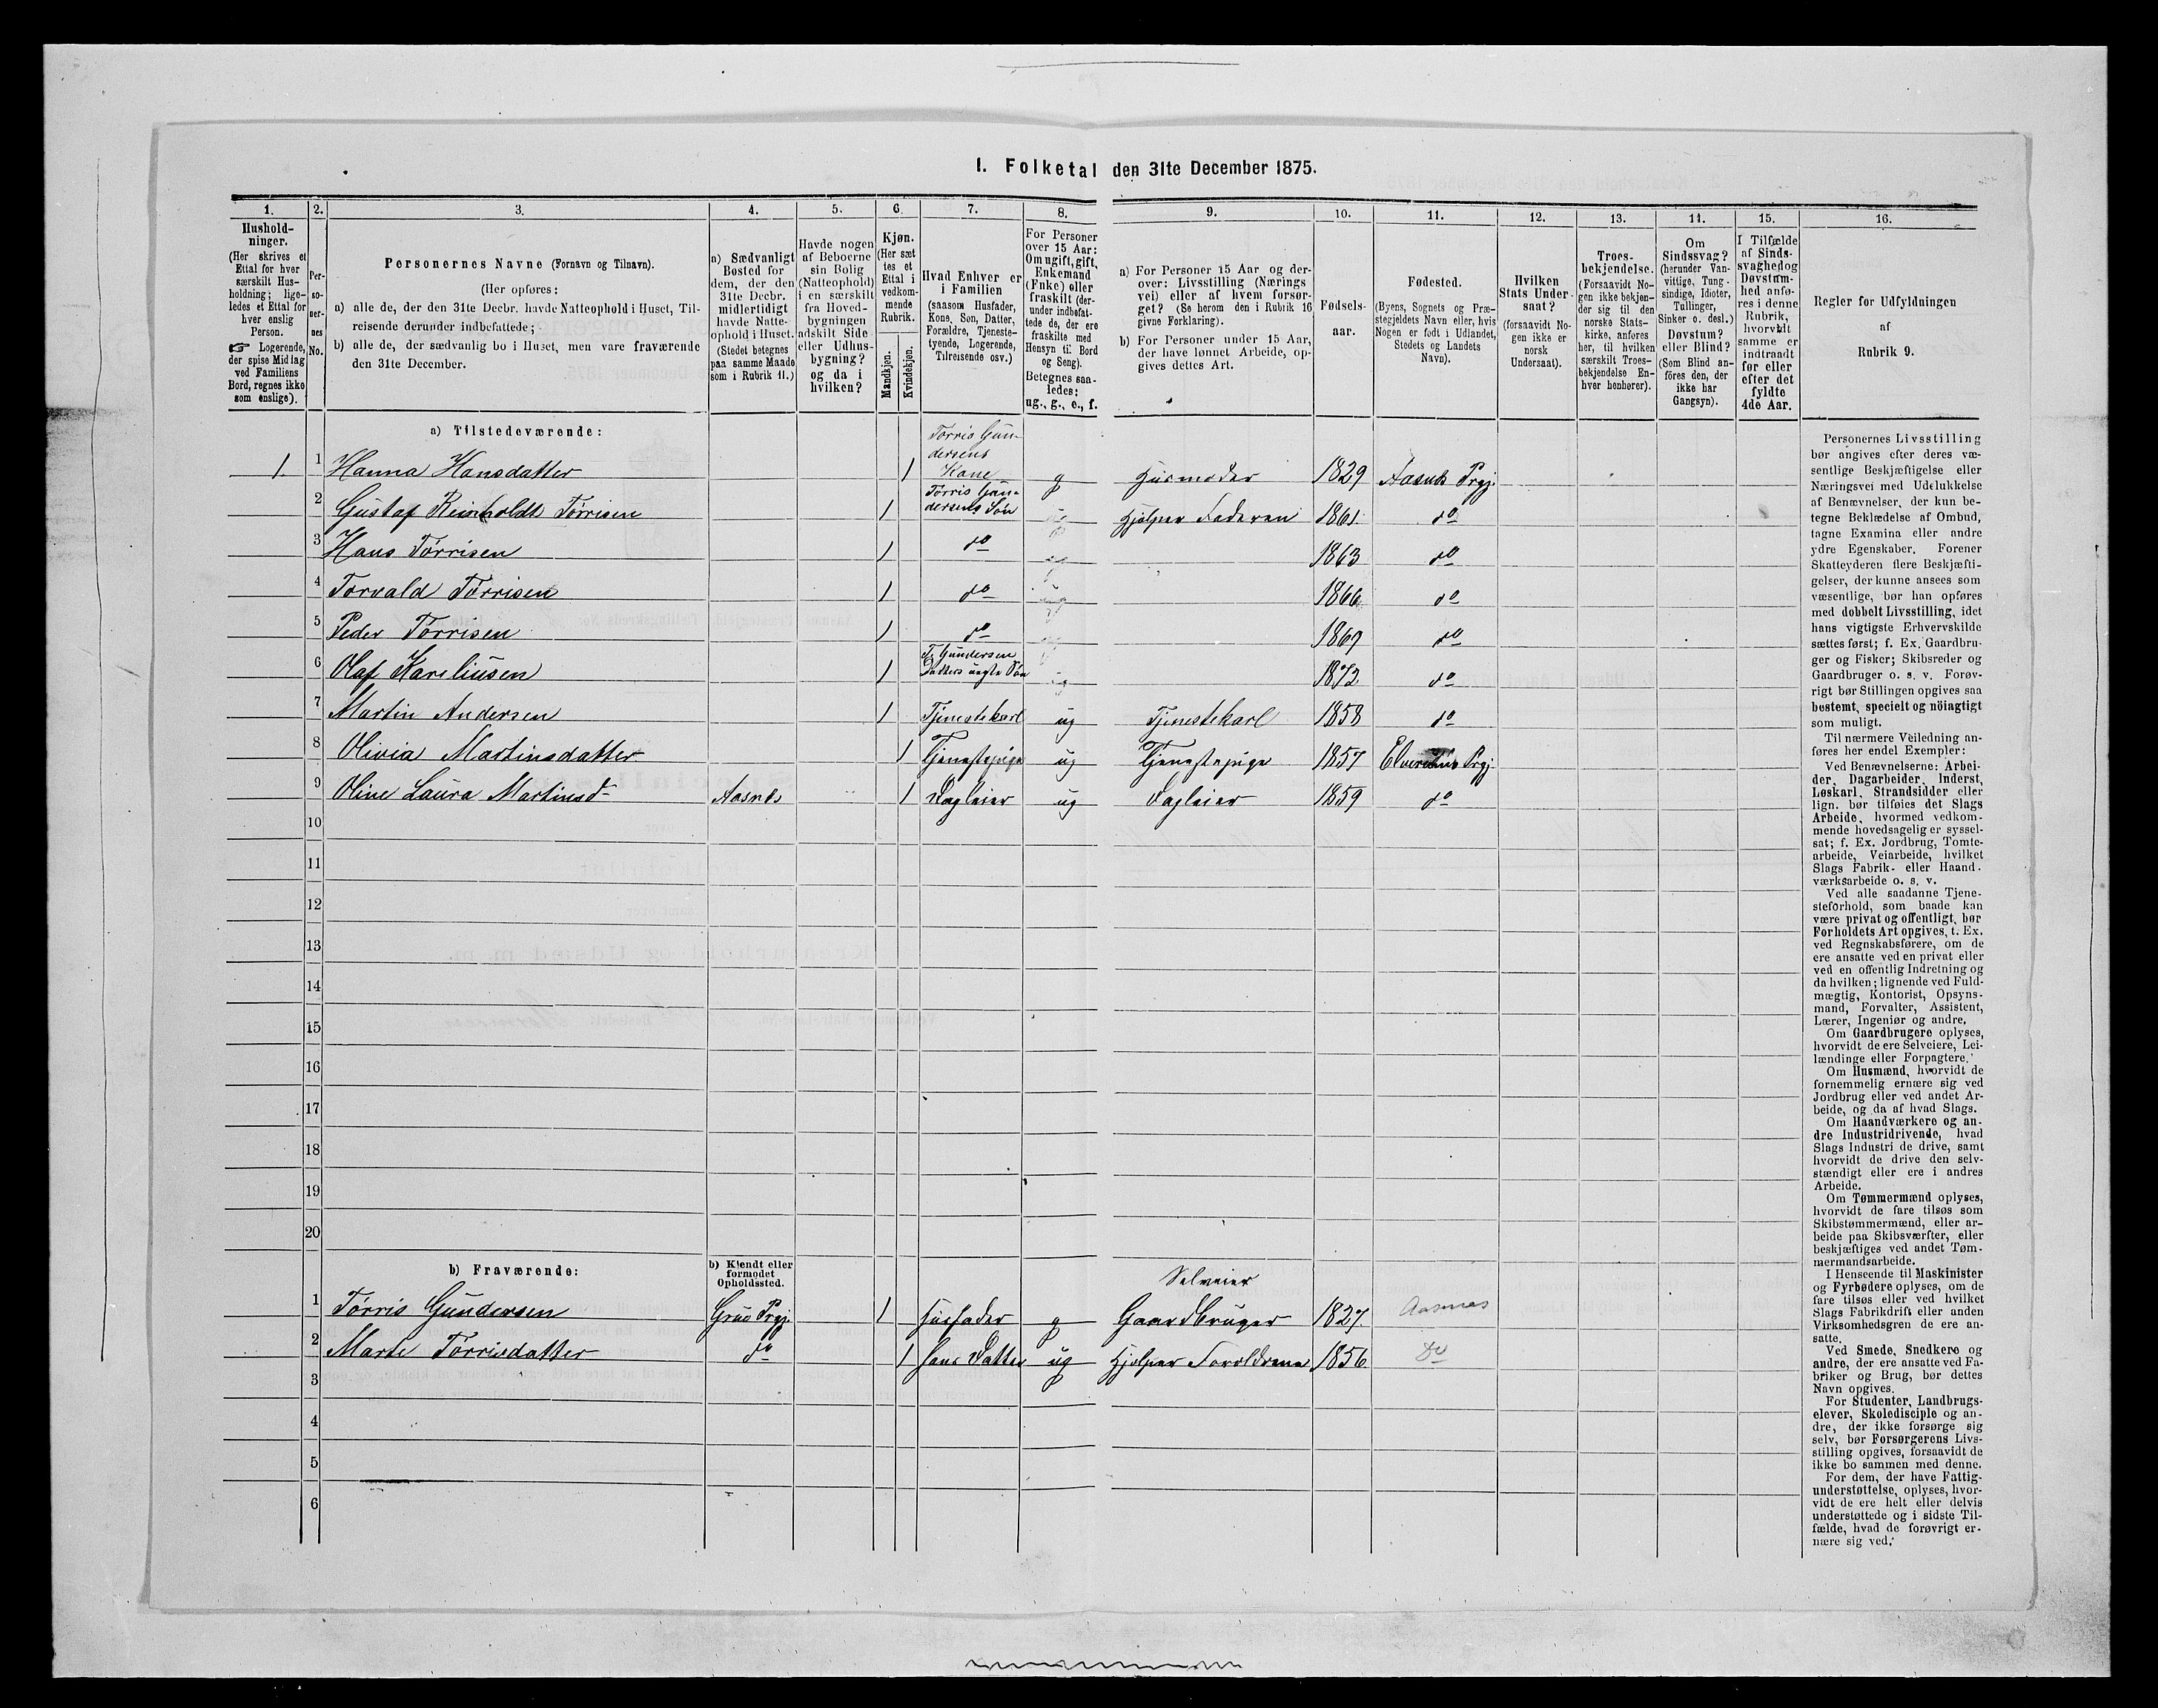 I. Folketal den 31te December 1875.
1. 2. 3. 4. 5. 6. 7. 8. 9. 10. 11. 12. 13. 14. 15. 16.
Hushold-
ninger.
(Her skrives et
Ettal for hver
særskilt Hus-
holdning; lige-
ledes et Ettal for
hver enslig
Person.
☞ Logerende,
der spise Middag
ved Familiens
Bord, regnes ikke
som enslige).
Per-
so-
ner-
nes
No.
Personernes Navne (Fornavn og Tilnavn).
(Her opføres:
a) alle de, der den 31te Decbr. havde Natteophold i Huset, Til-
reisende derunder indbefattede;
b) alle de, der sædvanlig bo i Huset, men vare fraværende
den 31te December.
a) Sædvanligt
Bosted for
dem, der den
31te Decbr.
midlertidigt
havde Natte-
ophold i Huset.
(Stedet betegnes
paa samme Maade
som i Rubrik 11.)
Havde nogen
af Beboerne
sin Bolig
(Natteophold)
i en særskilt
fra Hoved-
bygningen
adskilt Side
eller Udhus-
bygning?
og da i
hvilken?
Kjøn.
(Her sæt
tes et
Ettal i
vedkom-
mende
Rubrik.
Mandkjøn.
Kvindekjøn.
Hvad Enhver er
i Familien
(saasom Husfader,
Kone, Søn, Datter,
Forældre, Tjeneste-
tyende, Logerende,
Tilreisende osv.)
For Personer
over 15 Aar:
Om ugift, gift,
Enkemand
(Enke) eller
fraskilt (der-
under indbefat-
tede de, der ere
fraskilte med
Hensyn til Bord
og Seng).
Betegnes saa-
ledes:
ug., g., e., f.
a) For Personer 15 Aar og der-
over: Livsstilling (Nærings
vei) eller af hvem forsør-
get? (Se herom den i Rubrik 16
givne Forklaring).
b) For Personer under 15 Aar,
der have lønnet Arbeide, op-
gives dettes Art.
Fødsels-
aar.
Fødested.
(Byens, Sognets og Præ-
stegjeldets Navn eller, hvis
Nogen er født i Udlandet,
Stedets og Landets
Navn).
Hvilken
Stats Under-
saat?
(forsaavidt No-
gen ikke er
norsk
Undersaat).
Troes-
bekjendelse.
(Forsaavidt No-
gen ikke bekjen-
der sig til den
norske Stats-
kirke, anføres
her, til hvilken
særskilt Troes-
bekjendelse En-
hver henhører).
Om
Sindssvag?
(herunder Van-
vittige, Tung-
sindige, Idioter,
Tullinger,
Sinker o. desl.)
Døvstum?
eller Blind?
(Som Blind an-
føres den, der
ikke har
Gangsyn).
I Tilfælde
af Sinds-
svaghed og
Døvstum-
hed anfø-
res i denne
Rubrik,
hvorvidt
samme er
indtraadt
før eller
efter det
fyldte
4de Aar.
Regler for Udfyldningen
af
Rubrik 9.
a) Tilstedeværende:
1. 1 Hanna Hansdatter 1 Torris Gun-
dersens
Kone g Husmoder 1829 Aasnes Prgj.
2 Gustaf Reinholdt Tørrisen 1 Tørris Gun-
dersens Søn ug Hjelper Faderen 1861 do
3 Hans Tørrisen 1 do ug 1863 do
4 Torvald Tørrisen 1 do ug 1866 do
5 Peder Tørrisen 1 do 1869 do
6 Olaf Kareliusen 1 T. Gundersen
Datters uægte Søn ug 1873 do
7 Martin Andersen 1 Tjenestekarl ug Tjenestekarl 1858 do
8 Olivia Martinsdatter 1 Tjenestepige ug Tjenestepige 1857 Elverum Prgj
9 Oline Laura Martinsd- Aasnes 1 Dagleier ug Dagleier 1859 do
10
11
12
13
14
15
16
17
18
19
20
b) Fraværende:
b) Kjendt eller
formodet
Opholdssted.
Selveier
1 Tørris Gundersen Grue Prgj. 1 Husfader g Gaardbruger 1827 Aasnes
2 Marte Tørrisdatter do 1 hans Datter ug Hjelper Forældrene 1856 Do
3
4
5
6
Personernes Livsstilling
bør angives efter deres væ-
sentlige Beskjæftigelse eller
Næringsvei med Udelukkelse
af Benævnelser, der kun be-
tegne Beklædelse af Ombud,
tagne Examina eller andre
ydre Egenskaber. Forener
Skatteyderen flere Beskjæfti-
gelser, der kunne ansees som
væsentlige, bør han opføres
med dobbelt Livsstilling, idet
hans vigtigste Erhvervskilde
sættes først; f. Ex. Gaardbru-
ger og Fisker; Skibsreder og
Gaardbruger o. s. v. Forøv-
rigt bør Stillingen opgives saa
bestemt, specielt og nöiagtigt
som muligt.
Til nærmere Veiledning an-
føres her endel Exempler:
Ved Benævnelserne: Arbei-
der, Dagarbeider, Inderst,
Løskarl, Strandsidder eller
lign. bør tilføies det Slags
Arbeide, hvormed vedkom-
mende hovedsagelig er syssel-
sat; f. Ex. Jordbrug, Tomte-
arbeide, Veiarbeide, hvilket
Slags Fabrik- eller Haand-
værksarbeide o. s. v.
Ved alle saadanne Tjene-
steforhold, som baade kan
være privat og offentligt, bør
Forholdets Art opgives, t. Ex.
ved Regnskabsførere, om de
ere ansatte ved en privat eller
ved en offentlig Indretning og
da hvilken; lignende ved Fuld-
mægtig, Kontorist, Opsyns-
mand, Forvalter, Assistent,
Lærer, Ingeniør og andre.
Om Gaardbrugere oplyses,
hvorvidt de ere Selveiere, Lei-
lændinge eller Forpagtere.
Om Husmænd, hvorvidt de
fornemmelig ernære sig ved
Jordbrug eller ved andet Ar-
beide, og da af hvad Slags.
Om Haandværkere og an-
dre Industridrivende, hvad
Slags Industri de drive, samt
hvorvidt de drive den selv-
stændigt eller ere i andres
Arbeide.
Om Tømmermænd oplyses,
hvorvidt de fare tilsøs som
Skibstømmermænd, eller ar-
beide paa Skibsværfter, eller
beskjæftiges ved andet Tøm-
mermandsarbeide.
I Henseende til Maskinister
og Fyrbødere oplyses, om de
fare tilsøs eller ved hvilket
Slags Fabrikdrift eller anden
Virksomhedsgren de ere an-
satte.
Ved Smede, Snedkere og
andre, der ere ansatte ved Fa-
briker og Brug, bør dettes
Navn opgives.
For Studenter, Landbrugs-
elever, Skoledisciple og an-
dre, der ikke forsørge sig
selv, bør Forsørgerens Livs-
stilling opgives, forsaavidt de
ikke bo sammen med denne.
For dem, der have Fattig-
understøttelse, oplyses, hvor-
vidt de ere helt eller delvis
understøttede og i sidste Til-
fælde, hvad de forøvrigt er-
nære sig ved.